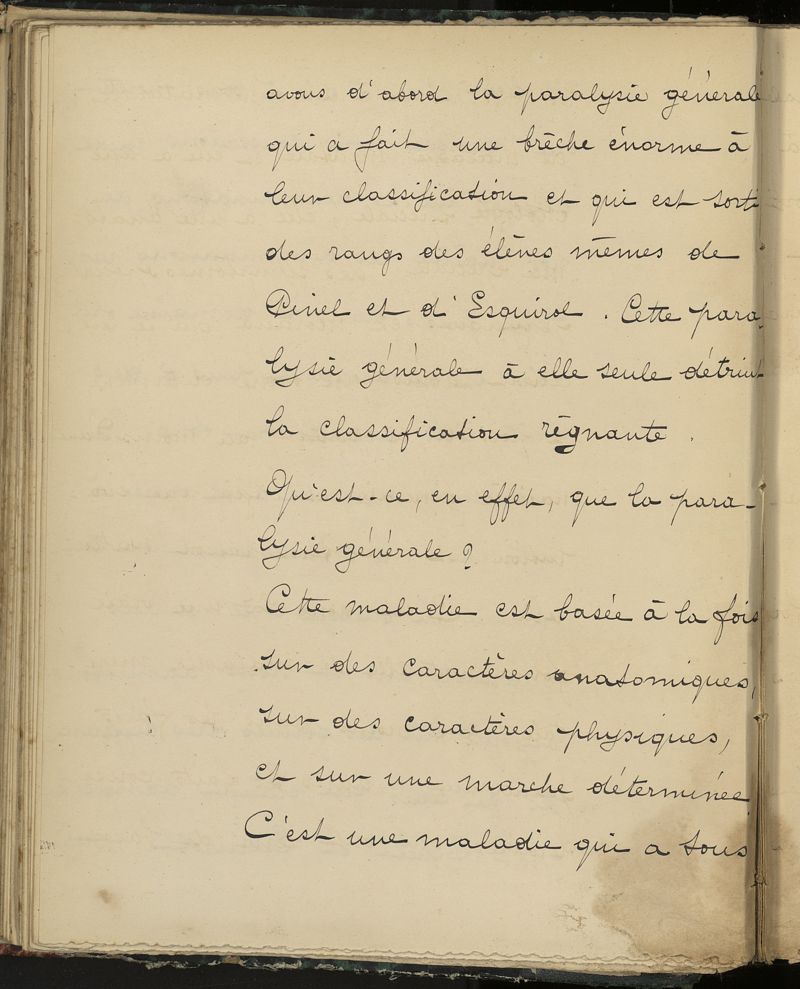 avons d'abord la paralysie générale
qui a fait une brèche énorme à
leur classification et qui est sorti
des rangs des élèves mêmes de
Pinel et d'Esquirol. Cette para-
lysie générale à elle seule détruit
la classification régnante.
Qu'est-ce, en effet, que la para-
lysie générale ?
Cette maladie est basée à la fois
sur des caractères anatomiques,
sur des caractères physiques,
et sur une marche déterminée
C'est une maladie qui a tous